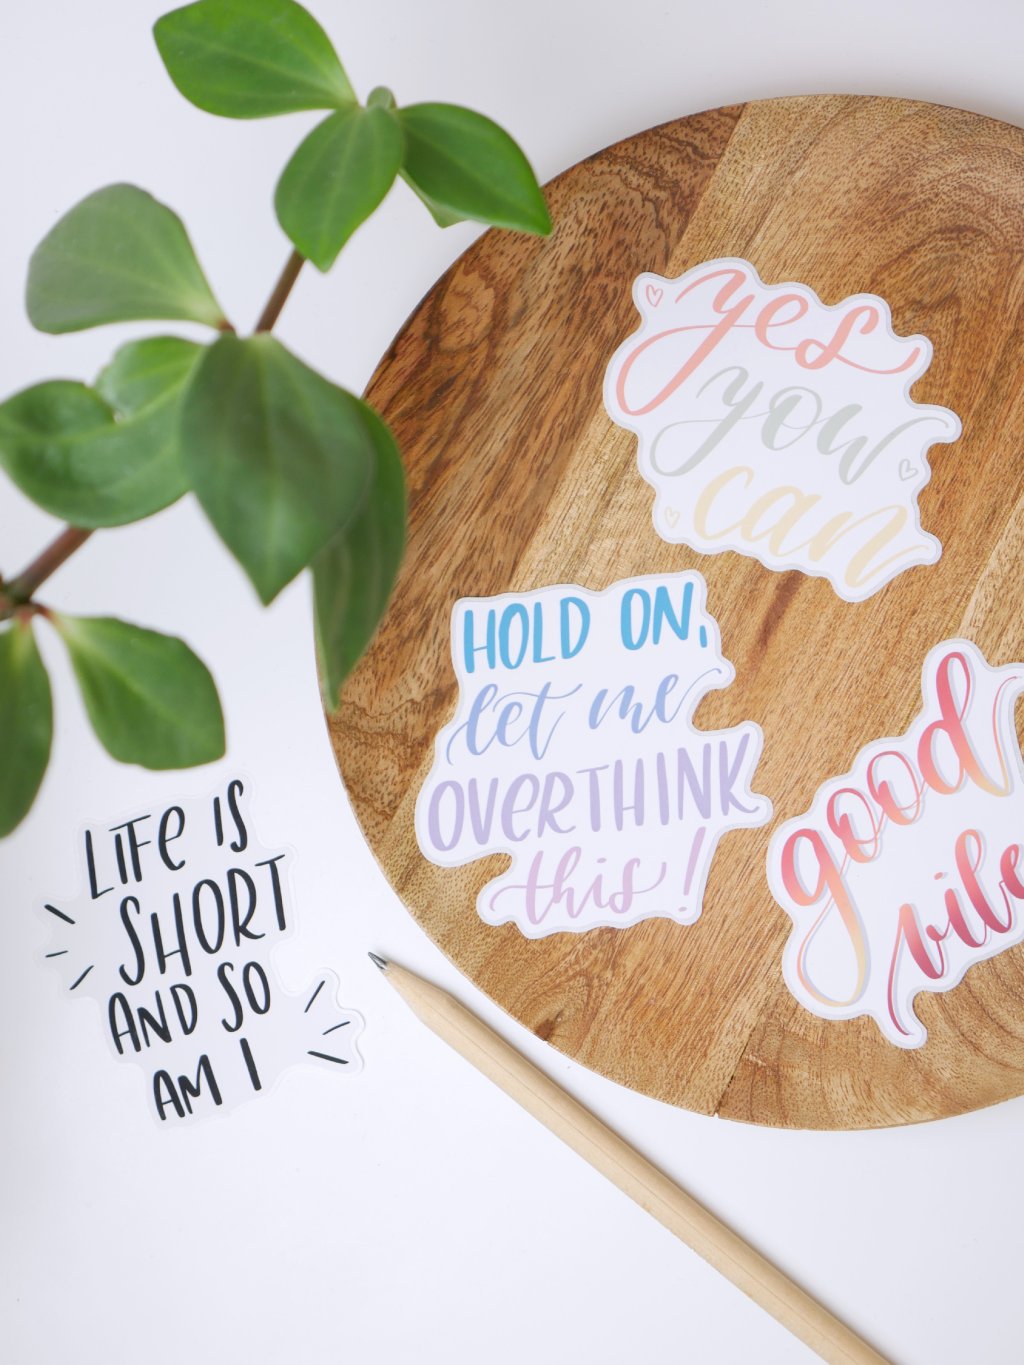 yes
you
can
HOLD ON,
let me
OVERTHINK
this!
good
LIFE IS
SHORT
AND SO
AM I